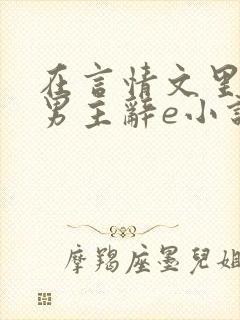 在言情文里
男主辭e小
摩羯座墨兒姐